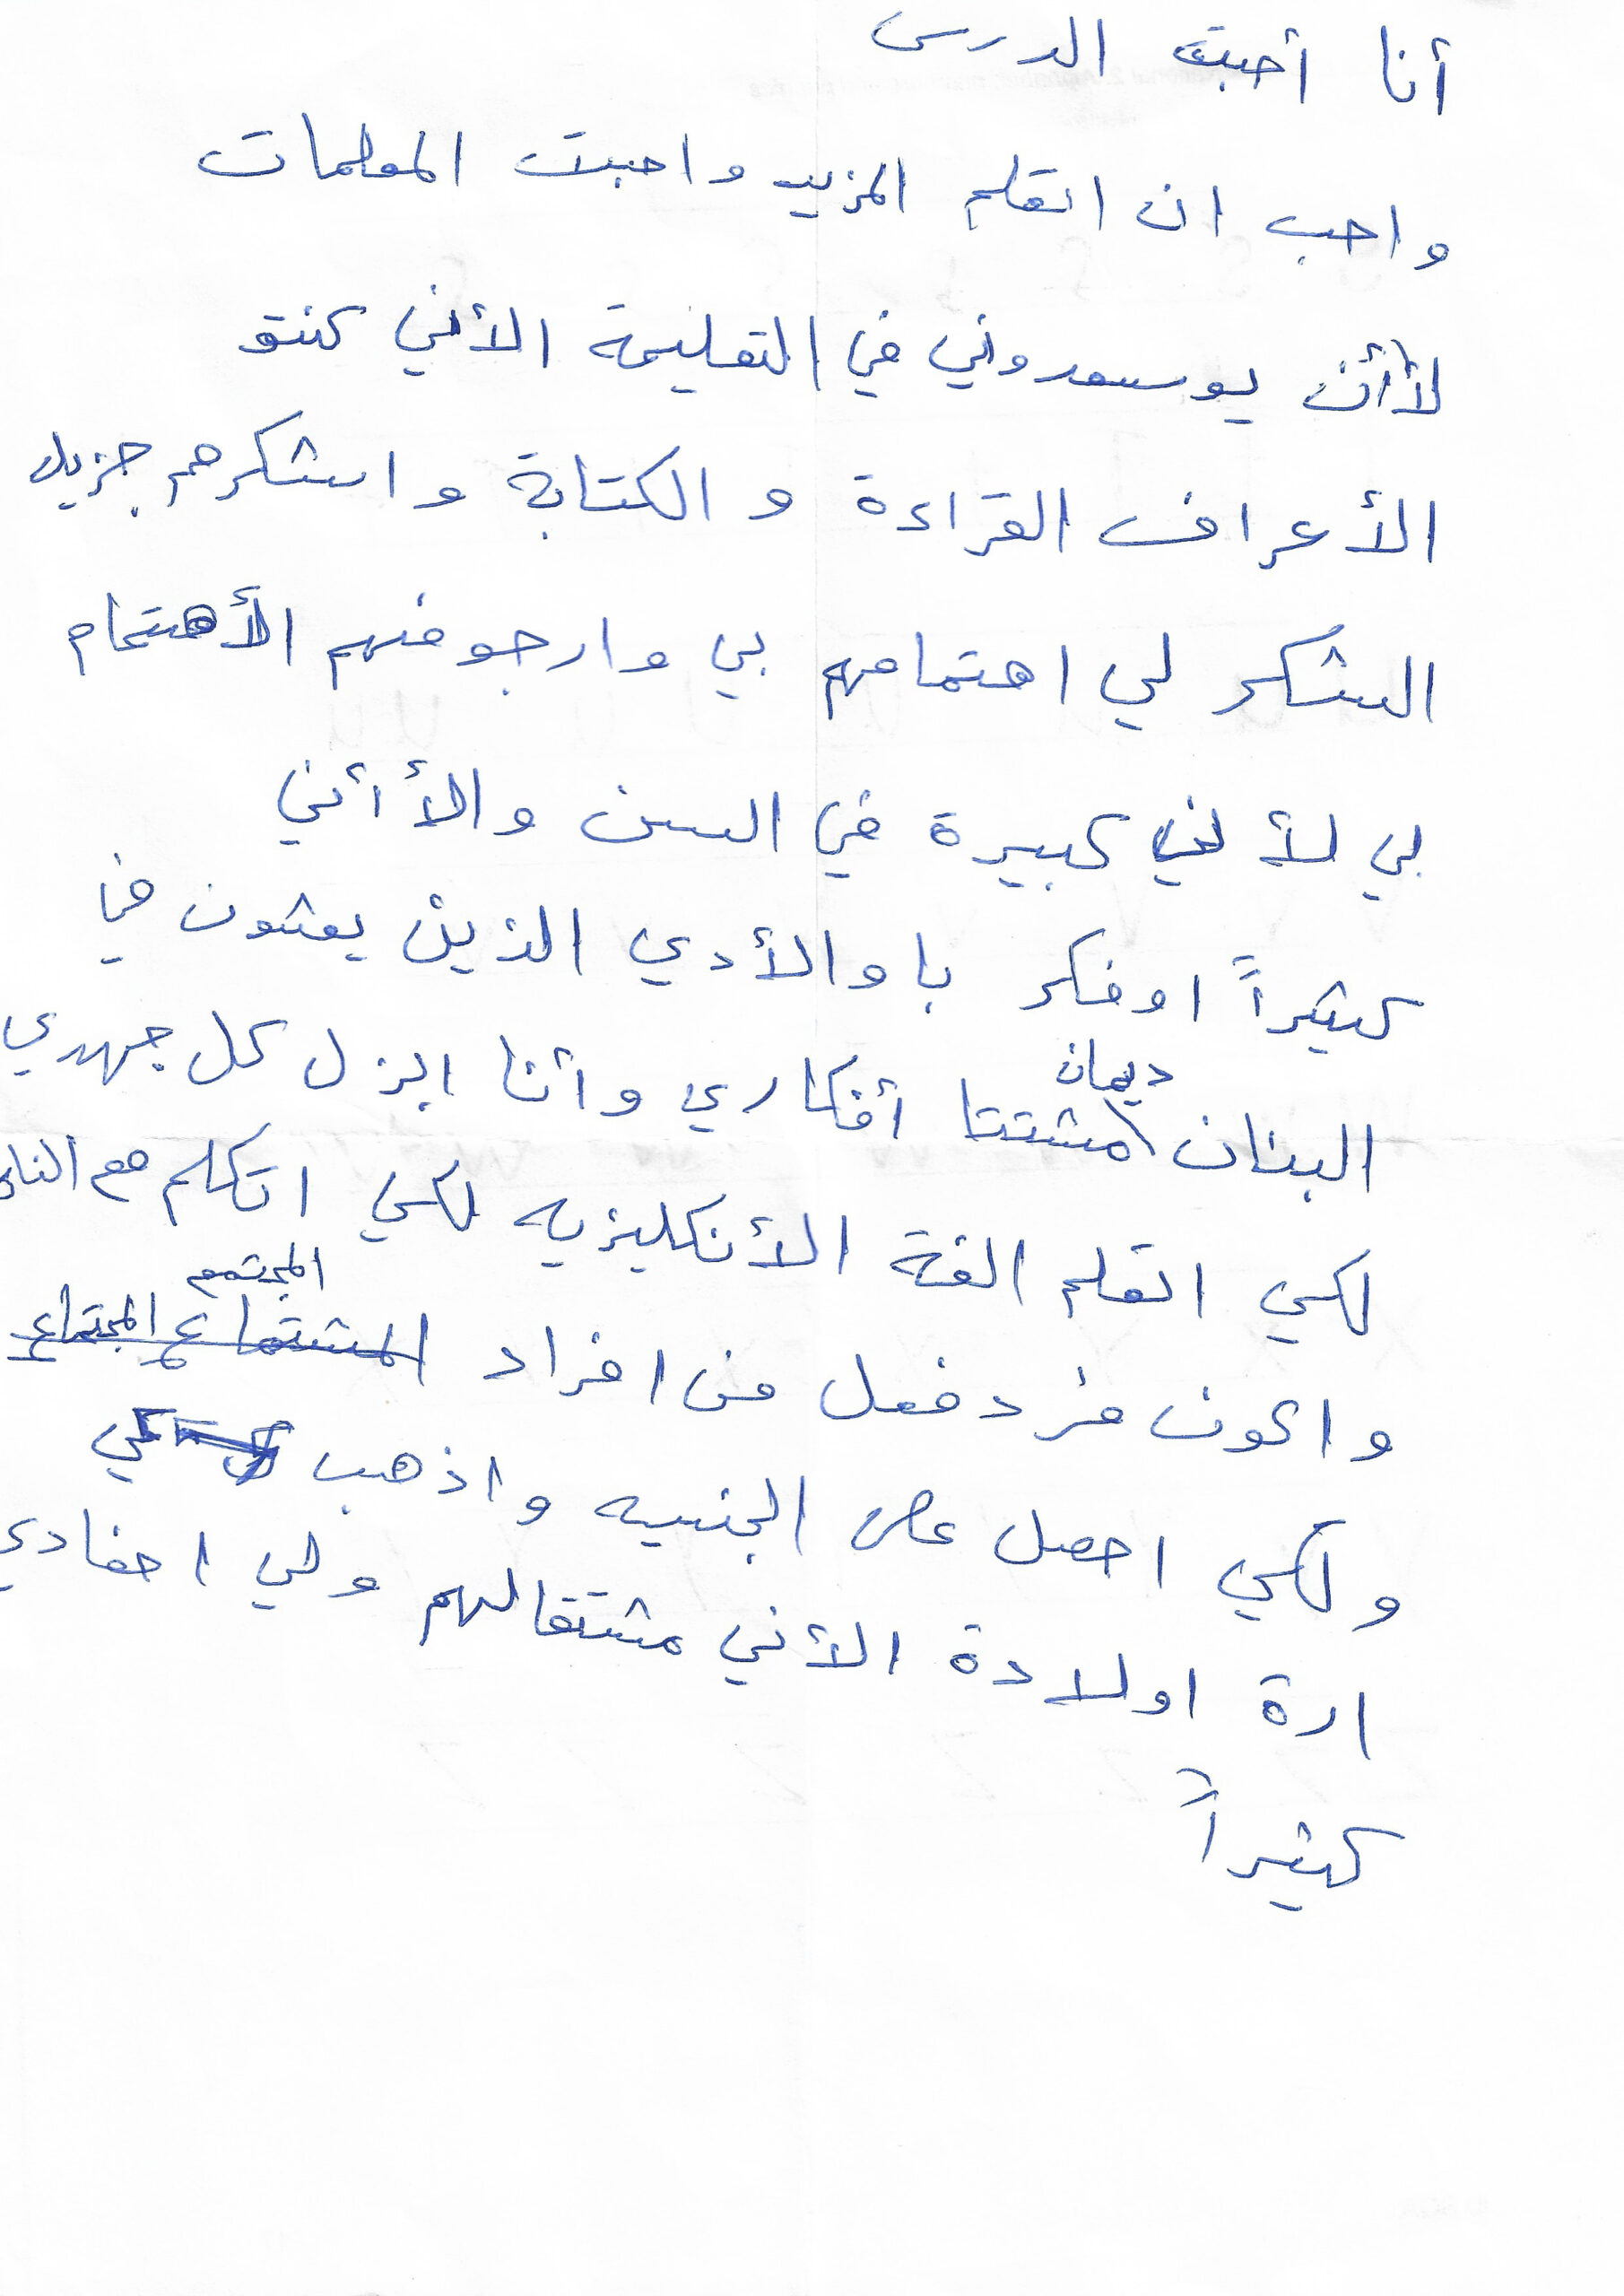 أنا أحبت الدرس
واحب ان اتعلم المزيد واحببت المعلمات
لأأن يوسعدوني في التعليمة الأني كنتو
الأعراف القراءة و الكتابة واشكرهم جزيل
الشكر لي اهتمامهم بي وارجو منهم الأهتمام
بي للأ نني كبيرة في السن والأ أنني
كثيراً اوفكر با والأدي الذين يعشون في
البنان ديمان مشتتا أفكاري وأنا ابزل كل جهدي
لكي اتعلم الغة الأنكليزيه لكي اتكلم مع الناس
واكون فرد فعل من افراد المشتماع المجتماع المجتمع
ولكي احصل على الجنسيه واذهب لكي
ارة اولادة الأني مشتقالهم ولي احفادي
كثيراً